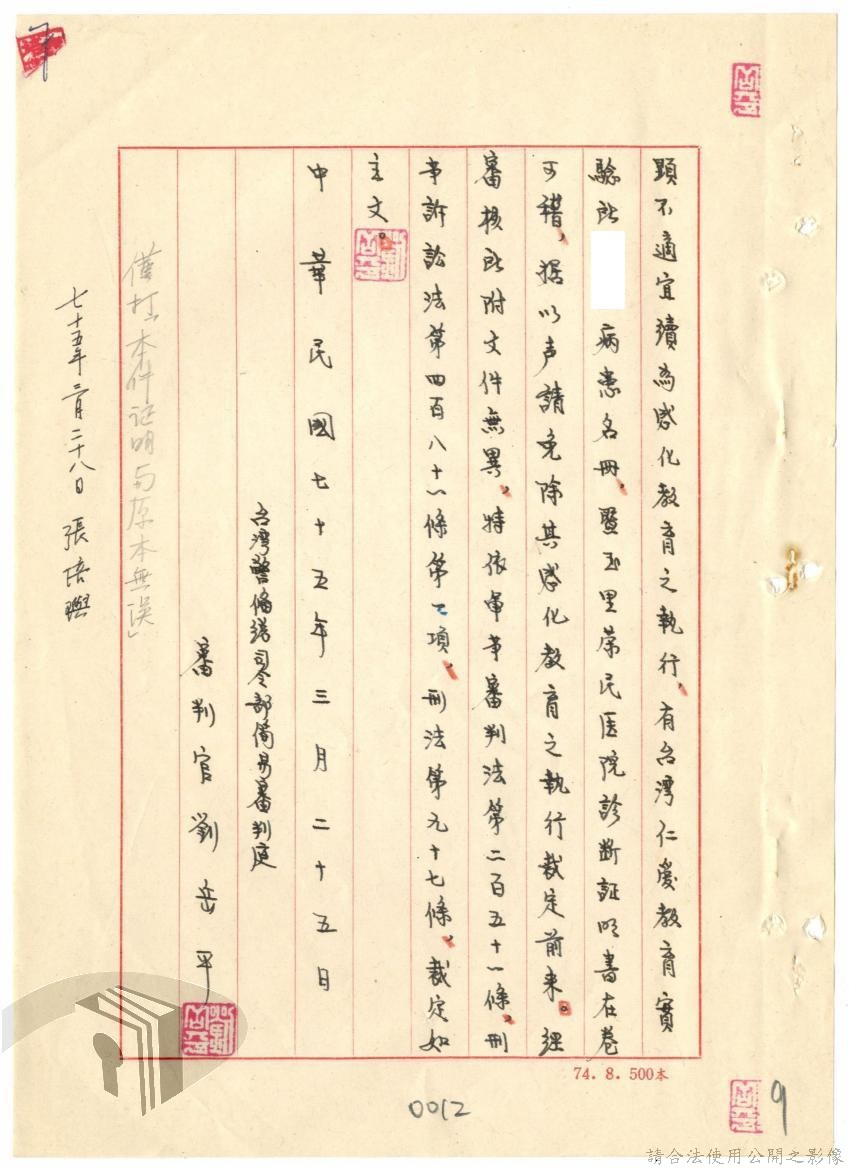 顯不適宜續為感化教育之執行，有台灣仁愛教育實
驗所 病患名冊，暨玉里荣民医院診断証明書在卷
可稽，据以声請免除其感化教育之執行裁定前来。經
審核所附文件無異，特依軍事審判法第二百五十一條，刑
事訴訟法第四百八十一條第一項，刑法第九十七條，裁定如
主文。
中華民國七十五年三月二十五日
台灣警備總司令部簡易審判庭
審判官劉岳平
本件証明与原本無误」
七十五年三月二十八日 張培
74. 8. 500本
0012
9
請合法使用公開之影像